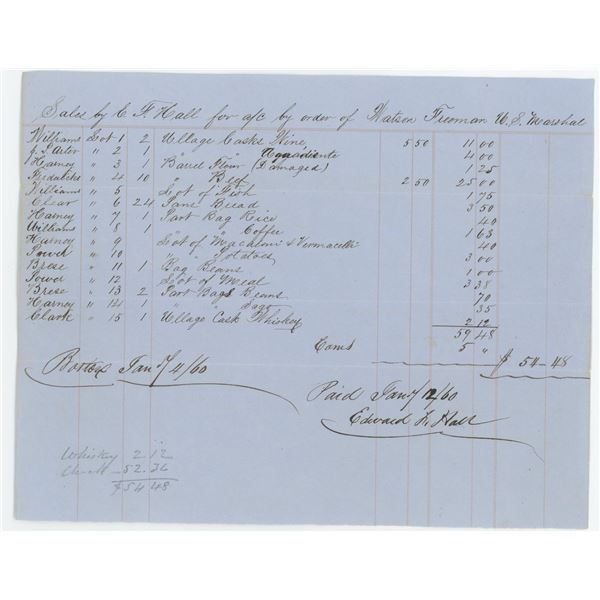 Sales by E F Hall for a/c by order of Watson Freeman U.S. Marshal
Williams Lot 1 2 Ullage Casks Wine 5 50 11 00
" 2 1 " Aguadiente 4 00
Harney " 3 1 Barrel Flour (Damaged) 1 25
Fredericks " 4 10 " Beef 2 50 25 00
Williams " 5 Lot of Fish 1 75
Clear " 6 24 Pans Bread 3 50
Harney " 7 1 Part Bag Rice 40
Williams " 8 1 " " Coffee 1 63
Harney " 9 Lot of Macaroni & Vermacelli 40
Powd " 10 " " Potatoes 3 00
Brese " 11 1 Bag Beans 1 00
Powd " 12 Lot of Meal 3 38
Brese " 13 2 Part Bags Beans 70
Harney " 14 1 " " Sago 35
Clark " 15 1 Ullage Cask Whiskey 2 12
59 48
Coms 5 " $ 54-48
Boston Jany 4/60
Paid Jany 12/60
Edward F. Hall
Whiskey 2 12
Check 52.36
$54 48